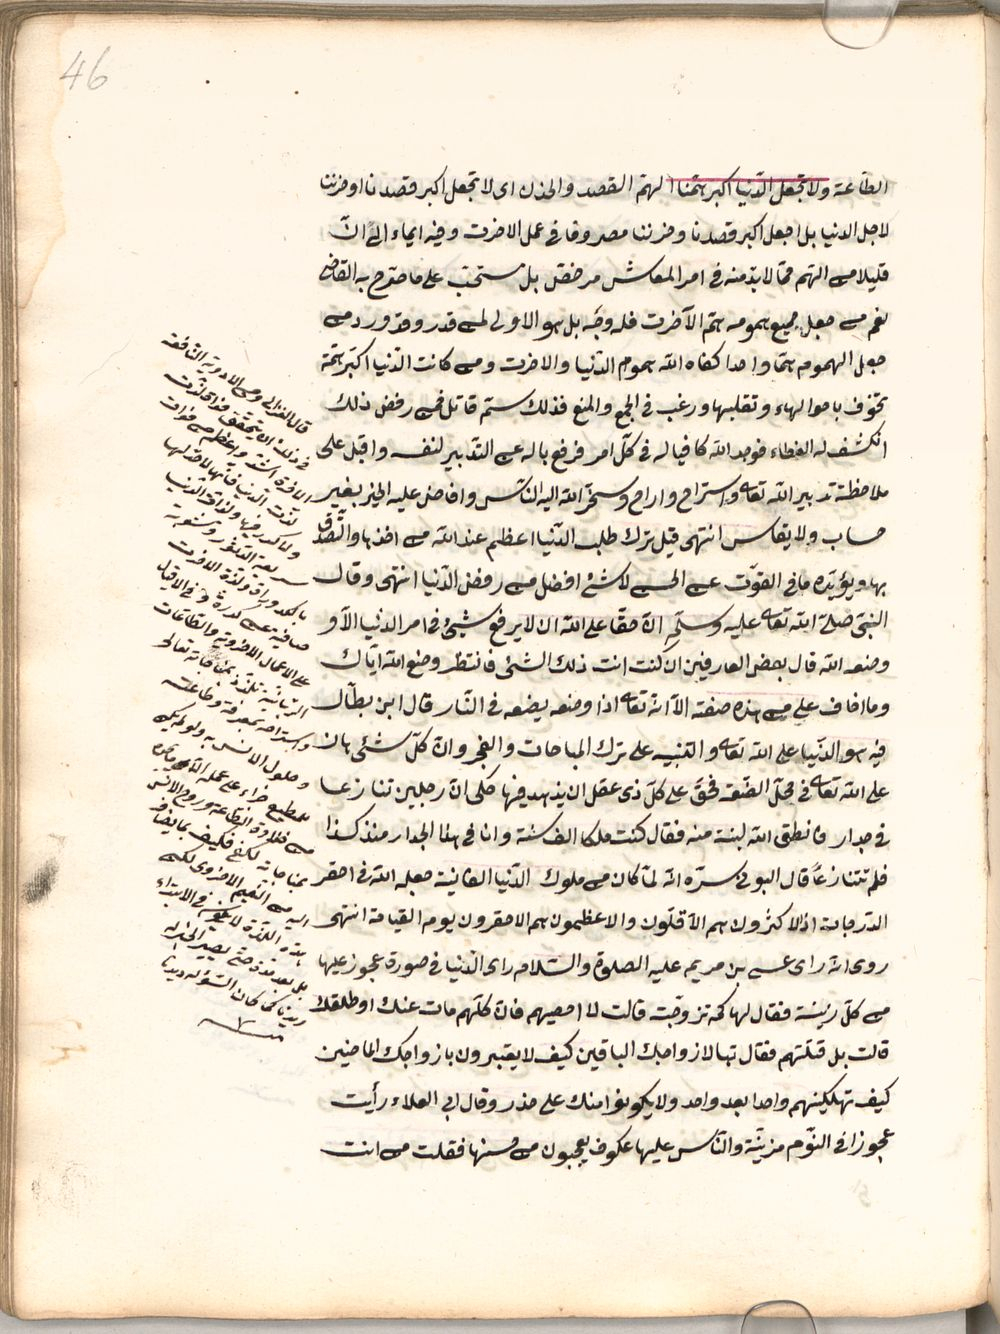 46
الطاعة ولا تجعل الدنيا اكبر همنا الهم القصد والحزن اى لا تجعل اكبر قصدنا او حزننا
لاجل الدنيا بل اجعل اكبر قصدنا وحزننا مصروفا فى عمل الاخرت وفيه ايماء الى ان
قليلا من الهم مما لا بد منه فى امر المعاش مرخص بل مستحب على ما صرح به القاضى
نعم من جعل جميع همومه هم الآخرت فله وجه بل هو الاولى لمن قدر وقد ورد من
جعل الهموم هما واحدا كفاه الله هموم الدنيا والاخرت ومن كانت الدنيا اكبر همه
تخوف باحوالهاء وتقلبها ورغب فى الجمع والمنع فذلك سم قاتل فمن رفض ذلك
انكشف له الغطاء فوجد الله كافيا له فى كل امر فرفع باله عن التدبير لنفسه واقبل على
ملاحظة تدبير الله تعالى واستراح واراح وسخر الله اليه الناس وافاض عليه الخير بغير
حساب ولا يقاس انتهى قيل ترك طلب الدنيا اعظم عند الله من اخذها والتصدق
بها ويؤيده ما فى القوت عن الحسن لا شئ افضل من رفض الدنيا انتهى وقال
النبى صلى الله تعالى عليه وسلم ان حقا على الله ان لا يرفع شيئ فى امر الدنيا الا و
وضعه الله قال بعض العارفين ان كنت انت ذلك الشئ فانتظر وضع الله اياك
وما اخاف على من هذه صفته الا انه تعالى اذا وضعه يضعه فى النار قال ابن بطال
فيه هو الدنيا على الله تعالى والتنبيه على ترك المباحات والفخر وان كل شئ هان
على الله تعالى فى محل الضعة فحق على كل ذى عقل ان يزهد فيها حكى ان رجلين تنازعا
فى جدار فانطق الله لبنة منه فقال كنت ملكا الف سنة وانا فى هذا الجدار منذ كذا
فلم تتنازعا قال البونى سره انه لما كان من ملوك الدنيا الفانية جعله الله فى احقر
الدرجات اذ الاكثرون هم الاقلون والاعظمون هم الاحقرون يوم القيامة انتهى
روى انه راى عيسى بن مريم عليه الصلوة والسلام راى الدنيا فى صورة عجوز عليها
من كل زينة فقال لها كم تزوجت قالت لا احصيهم فان كلهم مات عنك او طلقك
قالت بل قتلتهم فقال تبا لازواجك الباقين كيف لا يعتبرون بازواجك الماضين
كيف تهلكينهم واحدا بعد واحد ولا يكونوا منك على حذر وقال ابى العلاء رأيت
عجوزا فى النوم مزينة والناس عليها عكوف يعجبون من حسنها فقلت من انت
قال الغزالى ومن الادوية النافعة
فى ذلك ان يتحقق
الاخرة اشد واعظم من
لذت الدنيا فانها لا اخر لها
ولا كدر فيها ولذات الدنيا
سريعة
لذة الاخرت
صافية غير كدرة
على الاعمال الاخروية والطاعات
الربانية تلذذ بمناجاته تعالى
واستراحة بمعرفته وطاعته
وطول الانس به ولو لم يكن
للمطيع جزاء على عمله الا ما يجده
من حلاوة الطاعة وروح الانس
بمناجاته لكفى فكيف بما يضاف
اليه من النعيم الاخروى لكن
هذه اللذة لا تكون فى الابتداء
بل بعد مدة حتى يصير الخير له
ديدنا كما كان السوء له ديدنا